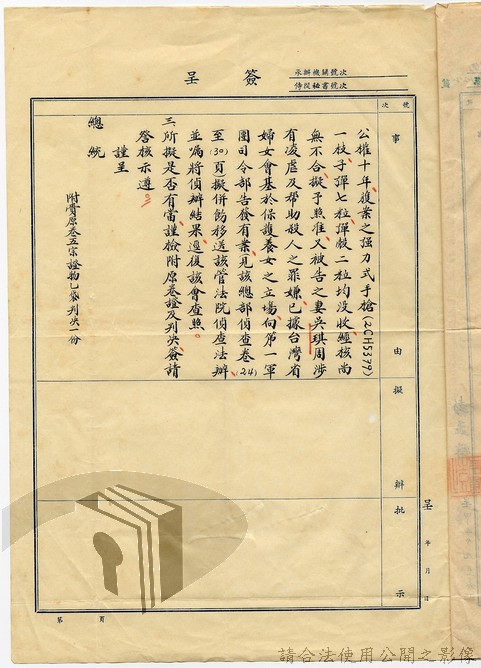 簽呈
承辦機關號次
侍從祕書號次
號次
事由
擬辦
批示
公權十年、復業之强力式手槍(2CH5379)
一枝、子彈七粒、彈殼二粒均沒收、經核尚
無不合、擬予照准、又被告之妻吳琪周涉
有凌虐及幫助殺人之罪嫌、已據台灣省
婦女會基於保護養女之立場、向第一軍
團司令部告發有業、見該總部偵查卷(24)
至(30)頁)擬併飭移送該管法院偵查法辦、
並嘱將偵辦結果、逕復該會查照。
三、所擬是否有當、謹檢附原卷證及判決、簽請
詧核示遵。
謹呈
總統
附賫原卷五宗證物乙袋判決一份
呈 年 月 日
第 頁
請合法使用公開之影像